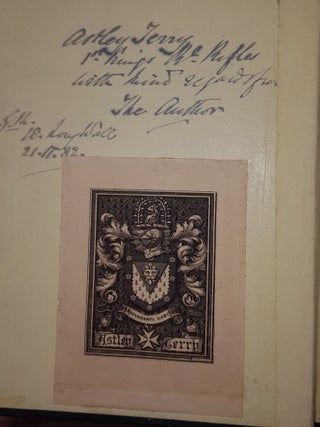 Astley Terry
1st Kings Rl. Rifles
with kind regards from
The Author
18. London Wall
21.11.82.
Astley Terry